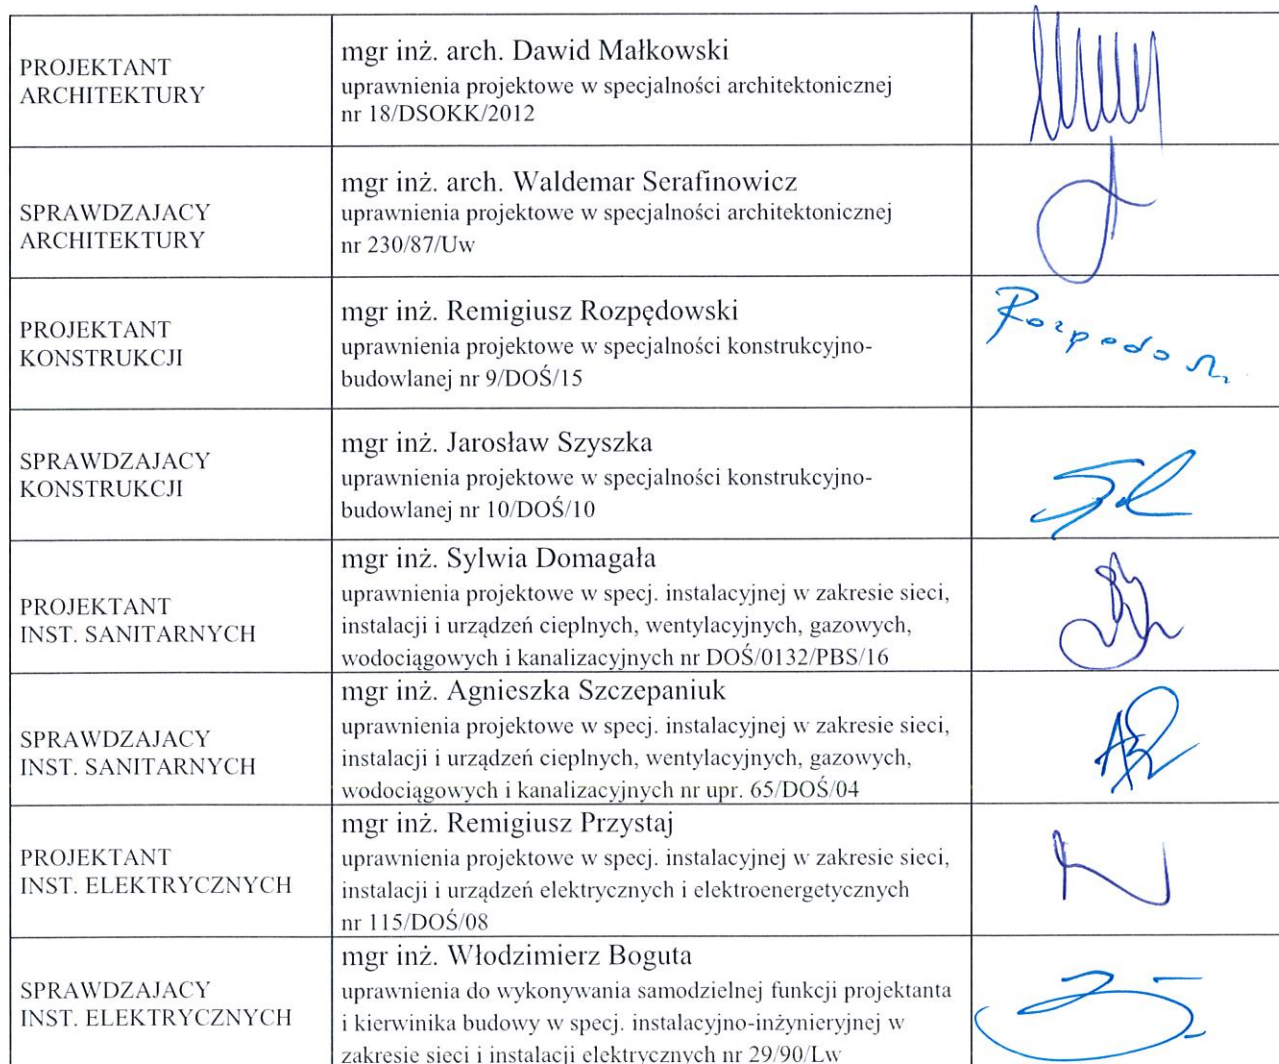 PROJEKTANT
ARCHITEKTURY
mgr inż. arch. Dawid Małkowski
uprawnienia projektowe w specjalności architektonicznej
nr 18/DSOKK/2012
SPRAWDZAJACY
ARCHITEKTURY
mgr inż. arch. Waldemar Serafinowicz
uprawnienia projektowe w specjalności architektonicznej
nr 230/87/Uw
PROJEKTANT
KONSTRUKCJI
mgr inż. Remigiusz Rozpędowski
uprawnienia projektowe w specjalności konstrukcyjno-
budowlanej nr 9/DOŚ/15
SPRAWDZAJACY
KONSTRUKCJI
mgr inż. Jarosław Szyszka
uprawnienia projektowe w specjalności konstrukcyjno-
budowlanej nr 10/DOŚ/10
PROJEKTANT
INST. SANITARNYCH
mgr inż. Sylwia Domagała
uprawnienia projektowe w specj. instalacyjnej w zakresie sieci,
instalacji i urządzeń cieplnych, wentylacyjnych, gazowych,
wodociągowych i kanalizacyjnych nr DOŚ/0132/PBS/16
SPRAWDZAJACY
INST. SANITARNYCH
mgr inż. Agnieszka Szczepaniuk
uprawnienia projektowe w specj. instalacyjnej w zakresie sieci,
instalacji i urządzeń cieplnych, wentylacyjnych, gazowych,
wodociągowych i kanalizacyjnych nr upr. 65/DOŚ/04
PROJEKTANT
INST. ELEKTRYCZNYCH
mgr inż. Remigiusz Przystaj
uprawnienia projektowe w specj. instalacyjnej w zakresie sieci,
instalacji i urządzeń elektrycznych i elektroenergetycznych
nr 115/DOŚ/08
SPRAWDZAJACY
INST. ELEKTRYCZNYCH
mgr inż. Włodzimierz Boguta
uprawnienia do wykonywania samodzielnej funkcji projektanta
i kierwinika budowy w specj. instalacyjno-inżynieryjnej w
zakresie sieci i instalacji elektrycznych nr 29/90/Lw